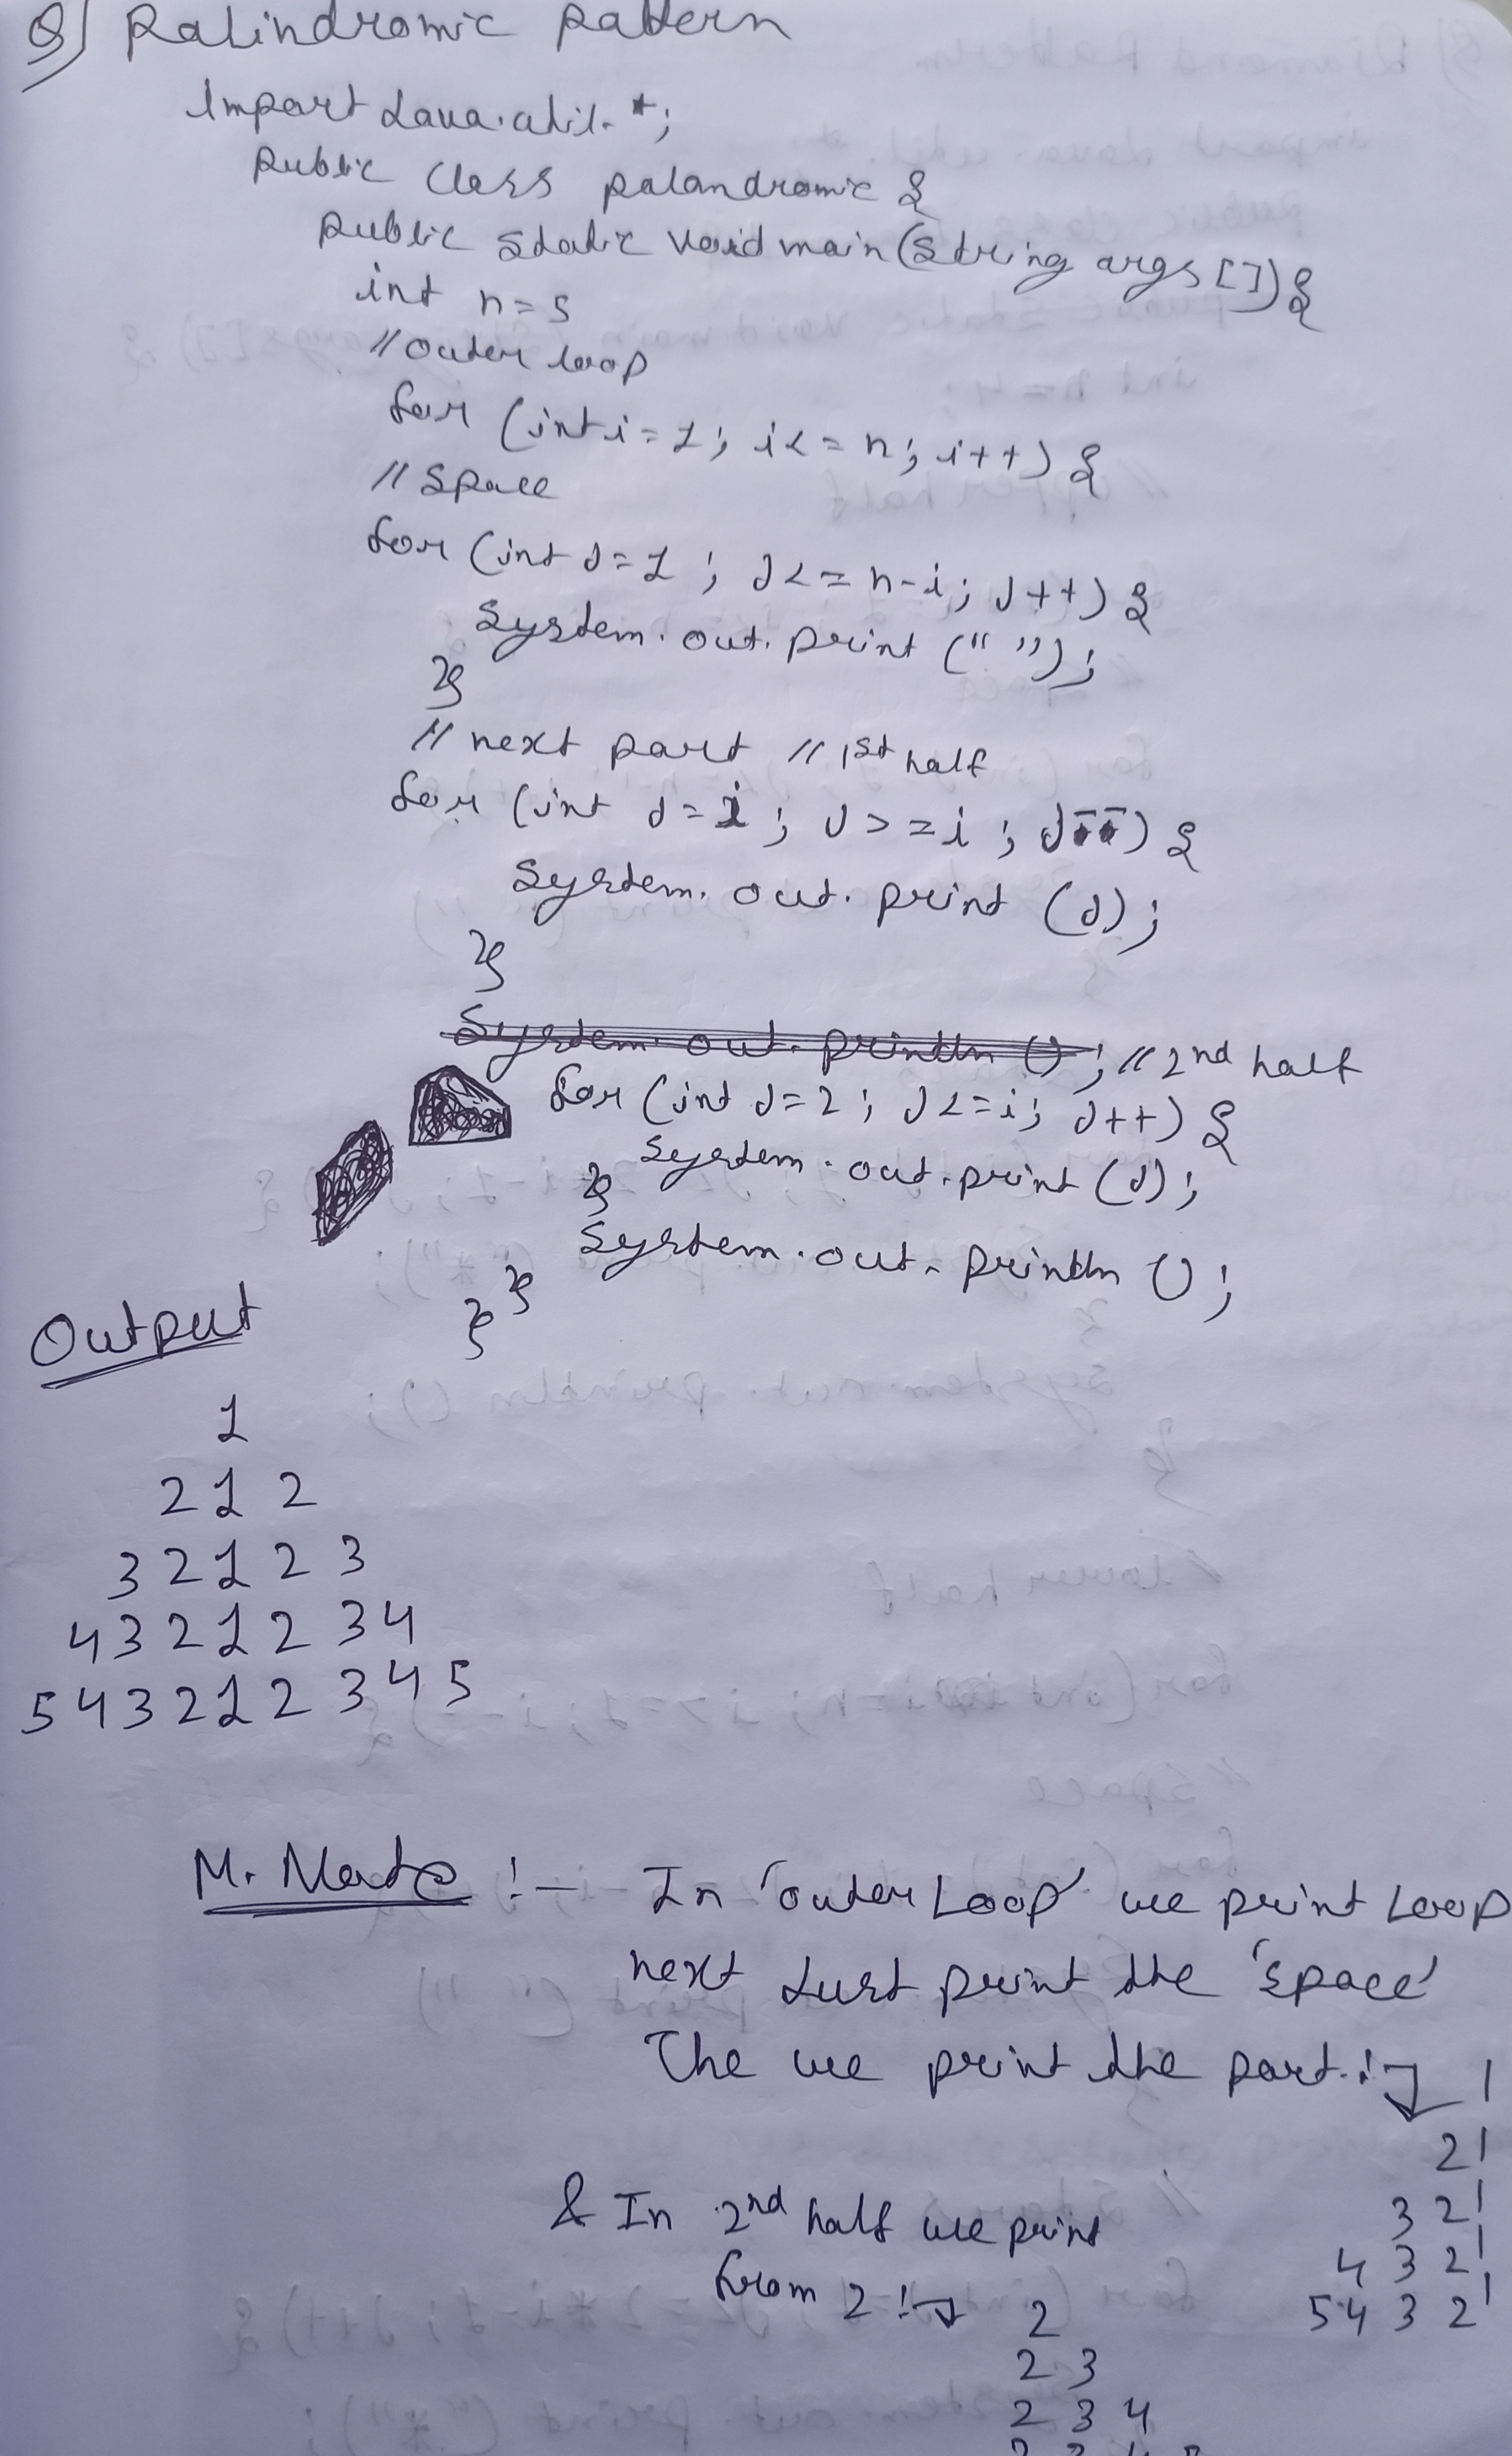 Q) Palindromic pattern
Import Java.util.*;
public class palandromic {
public static void main(String args[]){
int n=5
// outer loop
for (int i=1; i<=n; i++) {
// space
for (int j=1; j<=n-i; j++) {
System.out.print (" ");
}
// next part // 1st half
for (int j=i; j>=i; j--) {
System.out.print (j);
}
System.out.println (); // 2nd half
for (int j=2; j<=i; j++) {
System.out.print (j);
}
System.out.println ();
}
}
Output
1
2 1 2
3 2 1 2 3
4 3 2 1 2 3 4
5 4 3 2 1 2 3 4 5
M. Note :- In 'outer Loop' we print Loop
next Just print the 'space'
The we print the part :
1
2 1
3 2 1
4 3 2 1
5 4 3 2 1
& In 2nd half we print
from 2 :
2
2 3
2 3 4